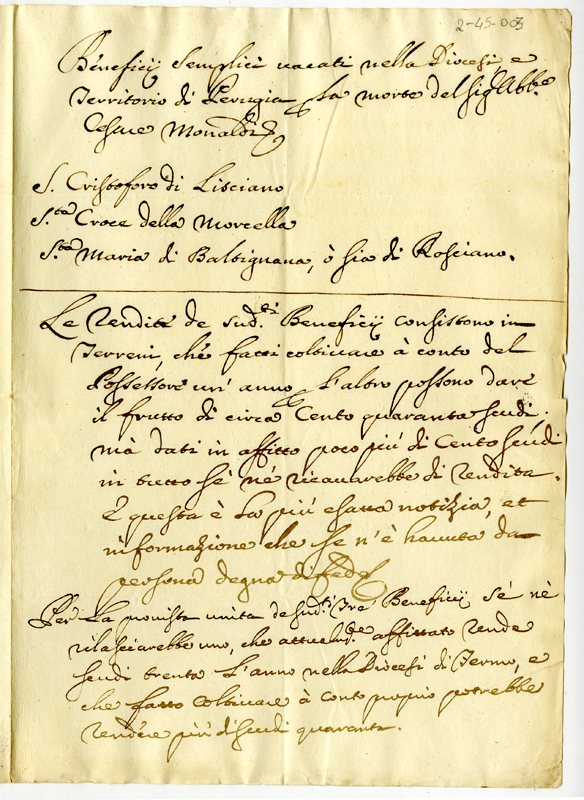 2-45-003
Beneficij Semplici vacati nella Diocesi, e
Territorio di Perugia p la morte del Sig.r Abb.e
Cesare Monaldi
S. Cristoforo di Lisciano
S.ta Croce della Morcella
S.ta Maria di Balbignana, ò sia di Rosciano.
Le rendite de sud.ti Beneficij consistono in
Terreni, che fatti coltivare à conto del
Possessore un' anno p l'altro possono dare
il frutto di circa Cento quaranta scudi,
mà dati in affitto poco più di Cento scudi
in tutto se né ricavarebbe di rendita.
E questa è la più esatta notizia, et
informazione che se n'è havuta da
persona degna di fede
Per la provista unita de sud.i trè Beneficij se né
rilasciarebbe uno, che attualm.te affittato rende
scudi trenta l'anno nella Diocesi di Fermo, e
che fatto coltivare à conto proprio potrebbe
rendere più di scudi quaranta.